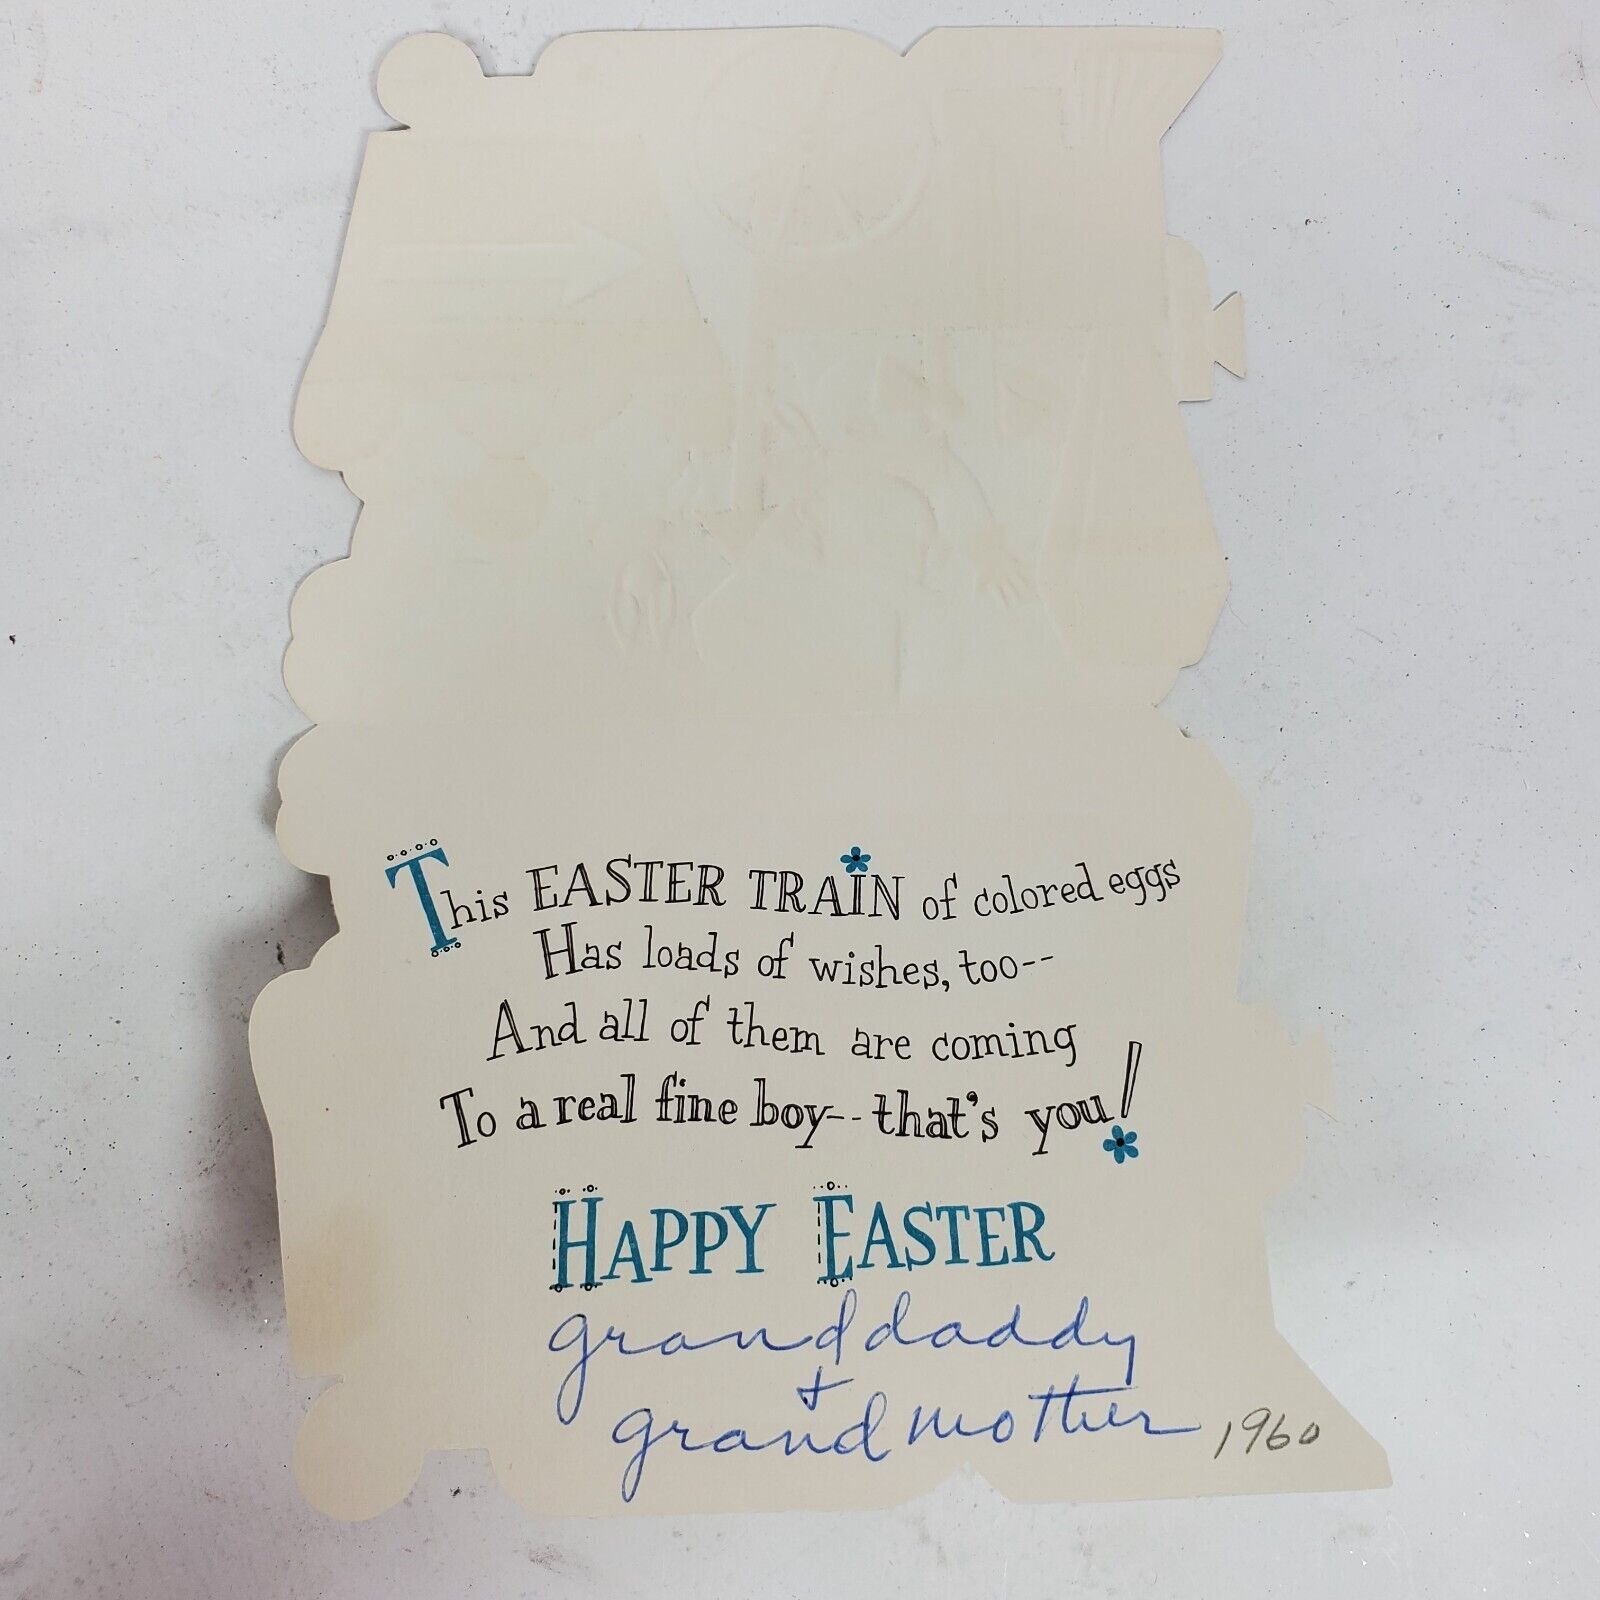 This EASTER TRAIN of colored eggs
Has loads of wishes, too--
And all of them are coming
To a real fine boy--that's you!
HAPPY EASTER
granddaddy
+
grandmother 1960